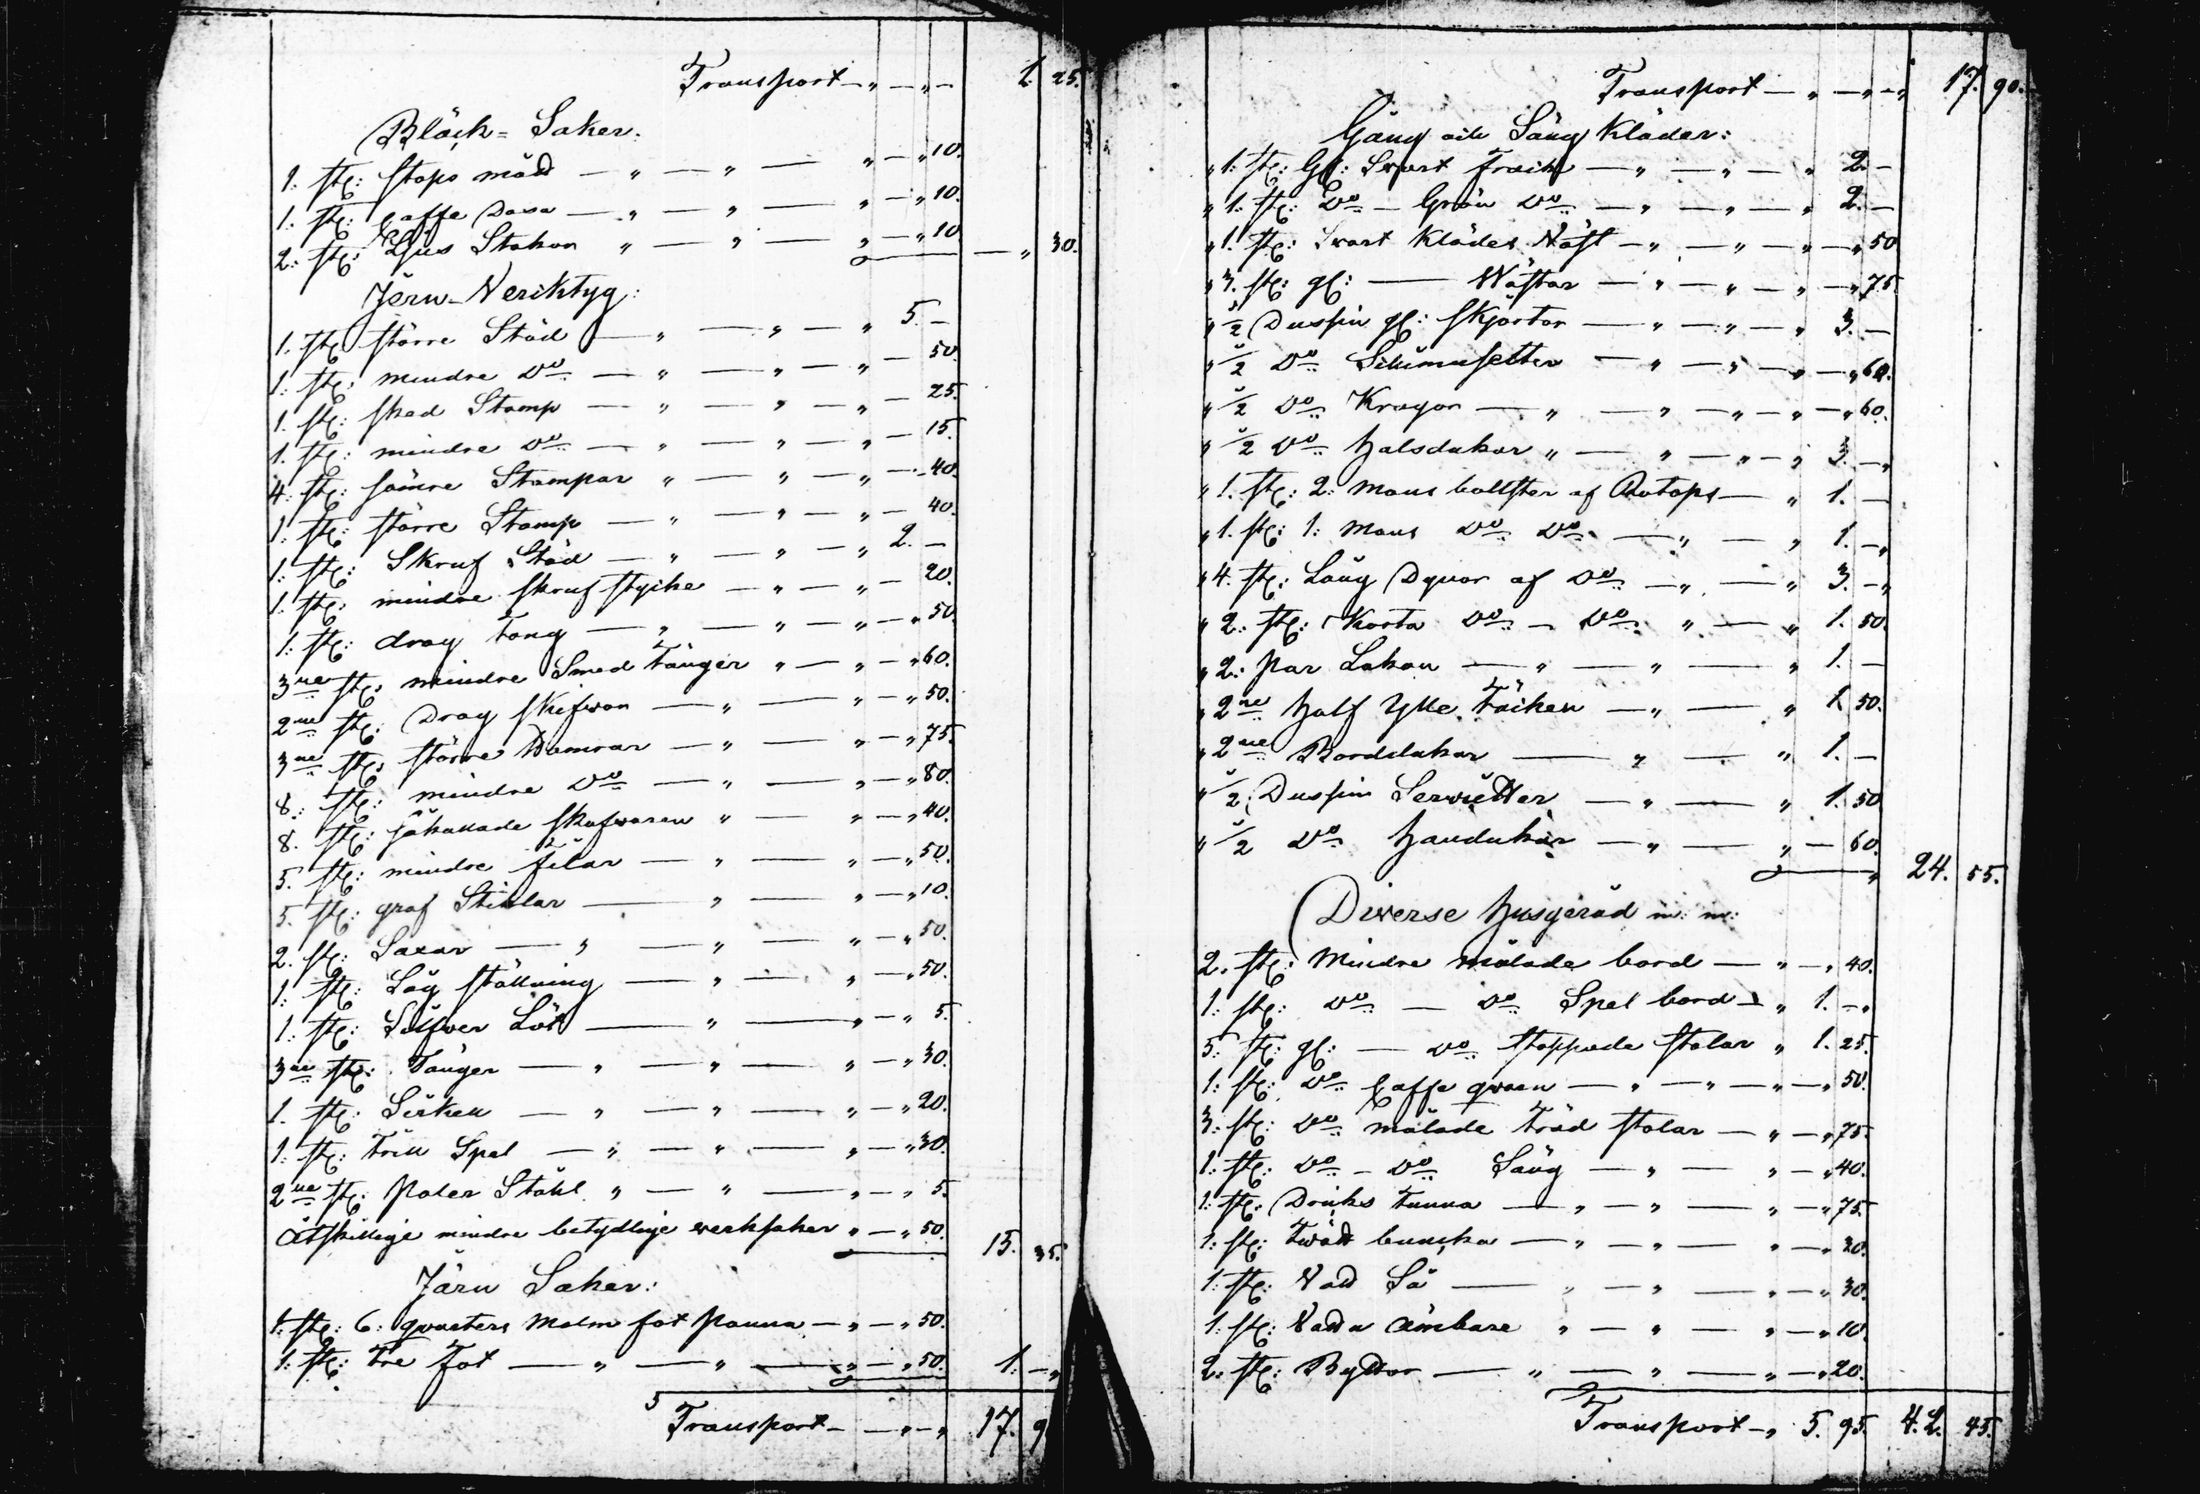 Transport — „ — „ — 1. 25.
Bläck = Saker:
1. st: Stops mått — „ — „ — „ — „ 10.
1. st: Caffe Dosa — „ — „ — „ — „ 10.
2. st: Ljus Stakar „ — „ — „ — „ 10 — „ 30.
Jern-Verktyg:
1. st: större Städ — „ — „ — „ 5. —
1. st: mindre Do — „ — „ — „ — 50.
1. st: sked Stamp — „ — „ — „ — 25.
1. st: mindre Do — „ — „ — „ — 15.
4. st: sämre Stampar „ — „ — „ — 40.
1. st: större Stamp — „ — „ — „ — 40.
1. st: Skruf Städ — „ — „ — „ 2. —
1. st: mindre skruf stycke — „ — „ — 20.
1. st: drag tang — „ — „ — „ — „ 50.
3ne st: mindre Smed tänger „ — „ — „ 60.
2ne st: Drag skifvor — „ — „ — „ 50.
3ne st: större Hamrar — „ — „ — „ 75.
8. st: mindre Do — „ — „ — „ 80.
8. st: såkallade „ — „ — „ 40.
5. st: mindre filar — „ — „ — „ 50.
5. st: graf Sticklar — „ — „ — „ 10.
2. st: Saxar — „ — „ — „ — „ 50.
1. st: Låg ställning — „ — „ — „ 50.
1. st: Silfver Löd — „ — „ — „ 5.
3ne st: Tänger — „ — „ — „ — „ 30.
1. st: Sirkel — „ — „ — „ — „ 20.
1. st: Trill Spel — „ — „ — „ — „ 30.
2ne st: Poler Stähl „ — „ — „ — „ 5.
Åtskillige mindre betydlige verksaker „ — „ 50. 15. 35.
Järn Saker:
1. st: 6. qvarters Malm fot panna — „ — „ 50.
1. st: Tre fot — „ — „ — „ — „ 50. 1. — „
Transport — — „ — „ 17. 9
Transport — „ — „ — „ 17. 90.
Gång och Säng Kläder:
„ 1. st: Gl: Svart frack — „ — „ — „ 2. —
„ 1. st: Do — Grön Do — „ — „ — „ 2. —
„ 1. st: Svart Klädes Väst — „ — „ — „ — „ 50
„ 3. st: gl: — Västar — „ — „ — „ — „ 75.
„ 1/2 Dussin gl: skjortor — „ — „ — „ 3. —
„ 1/2 Do — „ — „ — „ — „ 60.
„ 1/2 Do Kragar — „ — „ — „ — „ — „ 60.
„ 1/2 Do Halsdukar „ — „ — „ — „ 3. — „
„ 1. st: 2. Mans bolster af — „ 1. —
„ 1. st: 1. Mans Do Do — „ — „ 1. — „
„ 4. st: Lång Dynor af Do — „ — „ 3. — „
„ 2. st: Korta Do — Do „ — „ 1. 50.
„ 2. par Lakan — „ — „ — „ 1. —
„ 2ne Half Ylle Täcken — „ — „ 1. 50.
„ 2ne Borddukar — „ — „ 1. —
„ 1/2 Dussin Servietter — „ — „ 1. 50
„ 1/2 Do Handukar — „ — „ — 60. 24. 55.
Diverse Husgeråd m: m:
2. st: Mindre målade bord — „ — „ 40.
1. st: Do — Do Spel bord — „ 1. — „
5. st: gl: — Do stoppade stolar „ 1. 25.
1. st: Do Caffe qvarn — „ — „ — „ — 50.
3. st: Do målade träd stolar — „ — „ 75.
1. st: Do — Do Säng — „ — „ — „ 40.
1. st: Dricks tunna — „ — „ — „ — „ 75.
1. st: Tvätt buncka — „ — „ — „ — „ 20.
1. st: Vatt Så — „ — „ — „ — „ 30.
1. st: Vattu ämbare „ — „ — „ — „ 10.
2. st: Byttor — „ — „ — „ — „ 20.
Transport — „ 5. 95. 42. 45.